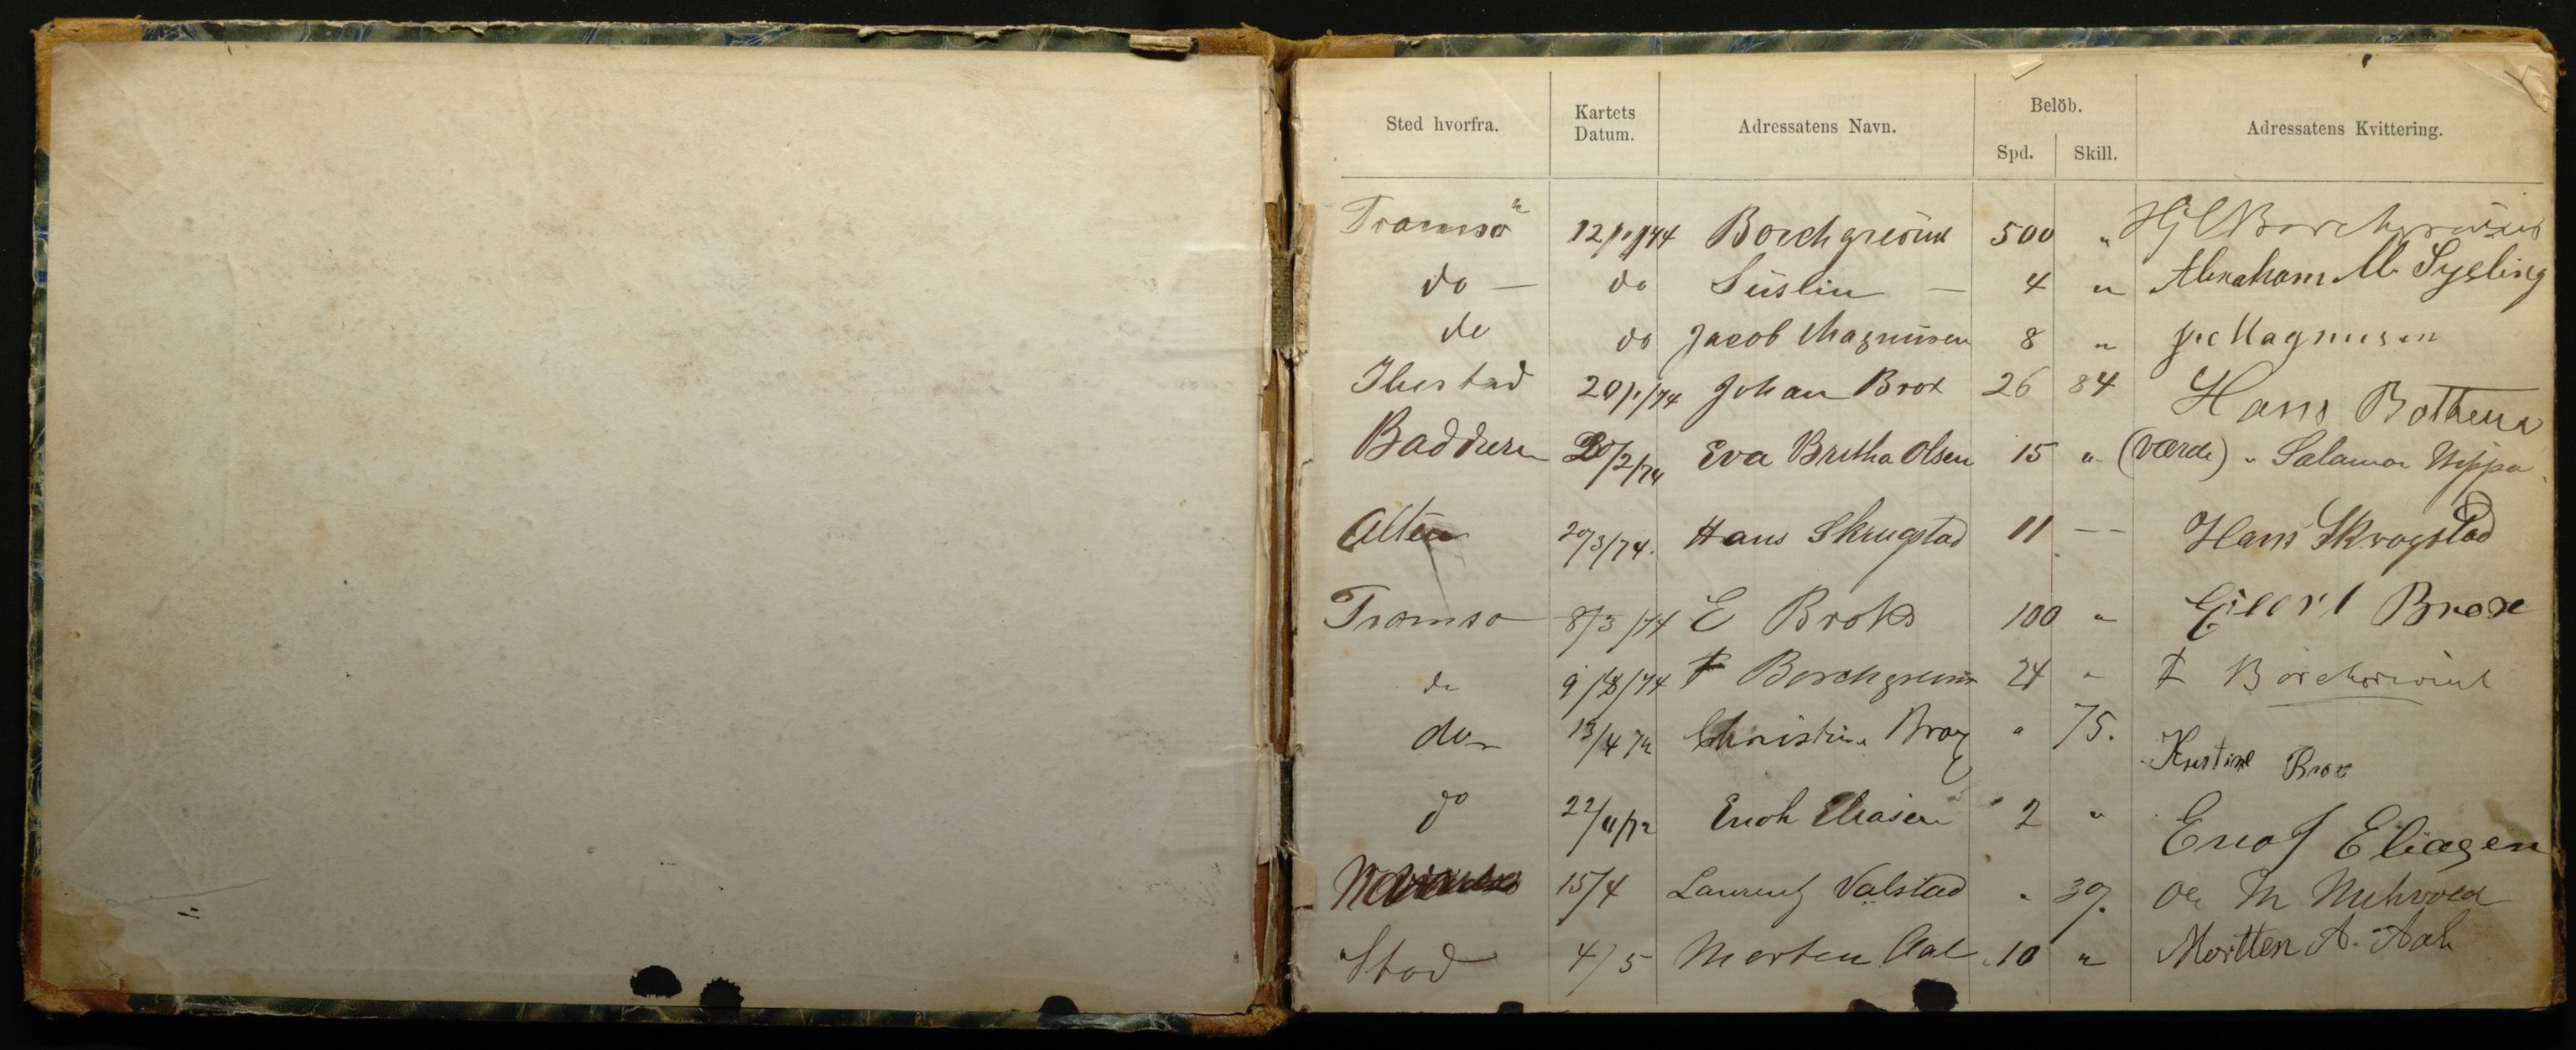 Sted hvorfra. Kartets Datum. Adressatens Navn. Belöb. Spd. Skill. Adressatens Kvittering.
Tromsö 12/1/74 Borchgrevink 500 "
do — do Süslin — 4 " Abraham M. Sysling
do do Jacob Magnüsen 8 " Magnusen
Ibestad 20/1/74 Johan Brox 26 84 Hans
Badderen 20/2/74 Eva Britha Olsen 15 " (værde) " Salamon
Alten 20/3/74. Hans Skrugstad 11 — — Hans Skrogstad
Tromsø 8/3/74 E Broks 100 " Eilert Broxe
do 9/3/74 Borchgrevink 24 " Borchgrevink
do 13/4 74 Christine Brox " 75. Kristine Brox
do 22/4/74 Enok Eliasen 2 " Enok Eliasen
15/4 Laurentz Valstad " 39. Ole M
Stod 4/5 Morten Aal 10 " Mortten A. Aal